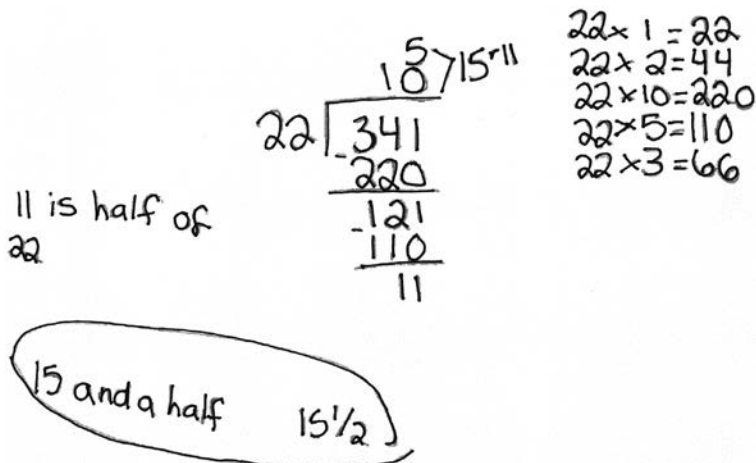 5
10 > 15 r 11
22 | 341
- 220
121
- 110
11
22 x 1 = 22
22 x 2 = 44
22 x 10 = 220
22 x 5 = 110
22 x 3 = 66
11 is half of
22
15 and a half 15 1/2